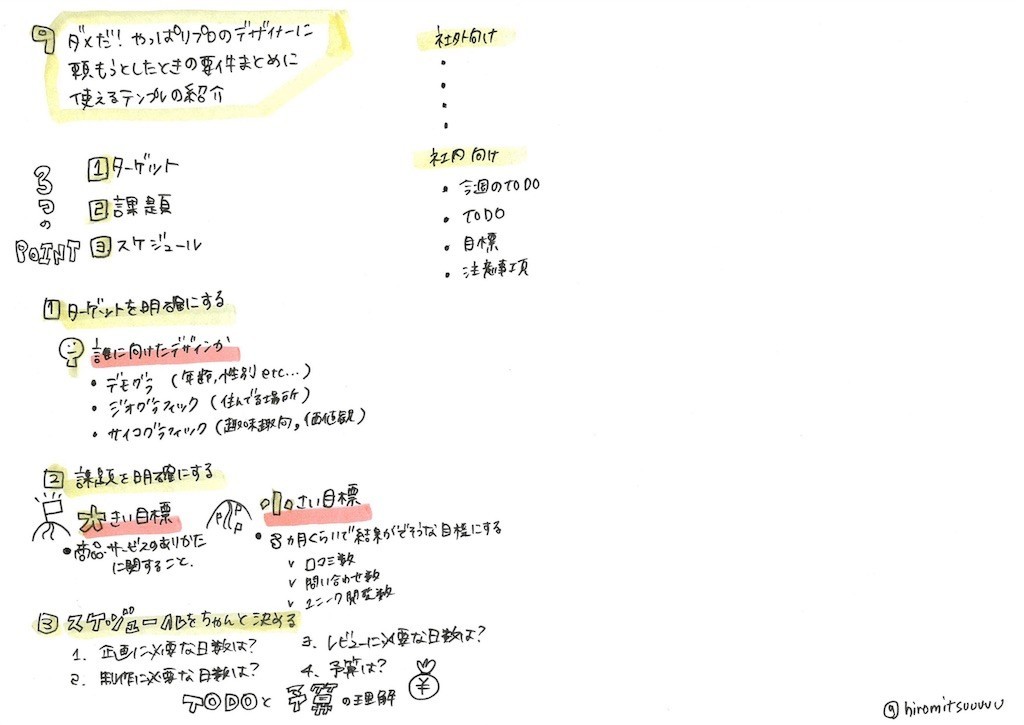 9 ダメだ！やっぱりプロのデザイナーに
頼もうとしたときの要件まとめに
使えるテンプレの紹介
3つの
POINT
1 ターゲット
2 課題
3 スケジュール
1 ターゲットを明確にする
誰に向けたデザインか
・デモグラ（年齢,性別etc...）
・ジオグラフィック（住んでる場所）
・サイコグラフィック（趣味趣向,価値観）
2 課題を明確にする
大きい目標
・商品・サービスのありかた
に関すること.
小さい目標
・3ヵ月くらいで結果がでそうな目標にする
v 口コミ数
v 問い合わせ数
v ユニーク閲覧数
3 スケジュールをちゃんと決める
1. 企画に必要な日数は？
2. 制作に必要な日数は？
3. レビューに必要な日数は？
4. 予算は？
TODOと予算の理解
¥
社外向け
・
・
・
・
社内向け
・今週のTODO
・TODO
・目標
・注意事項
@hiromitsuuuuu